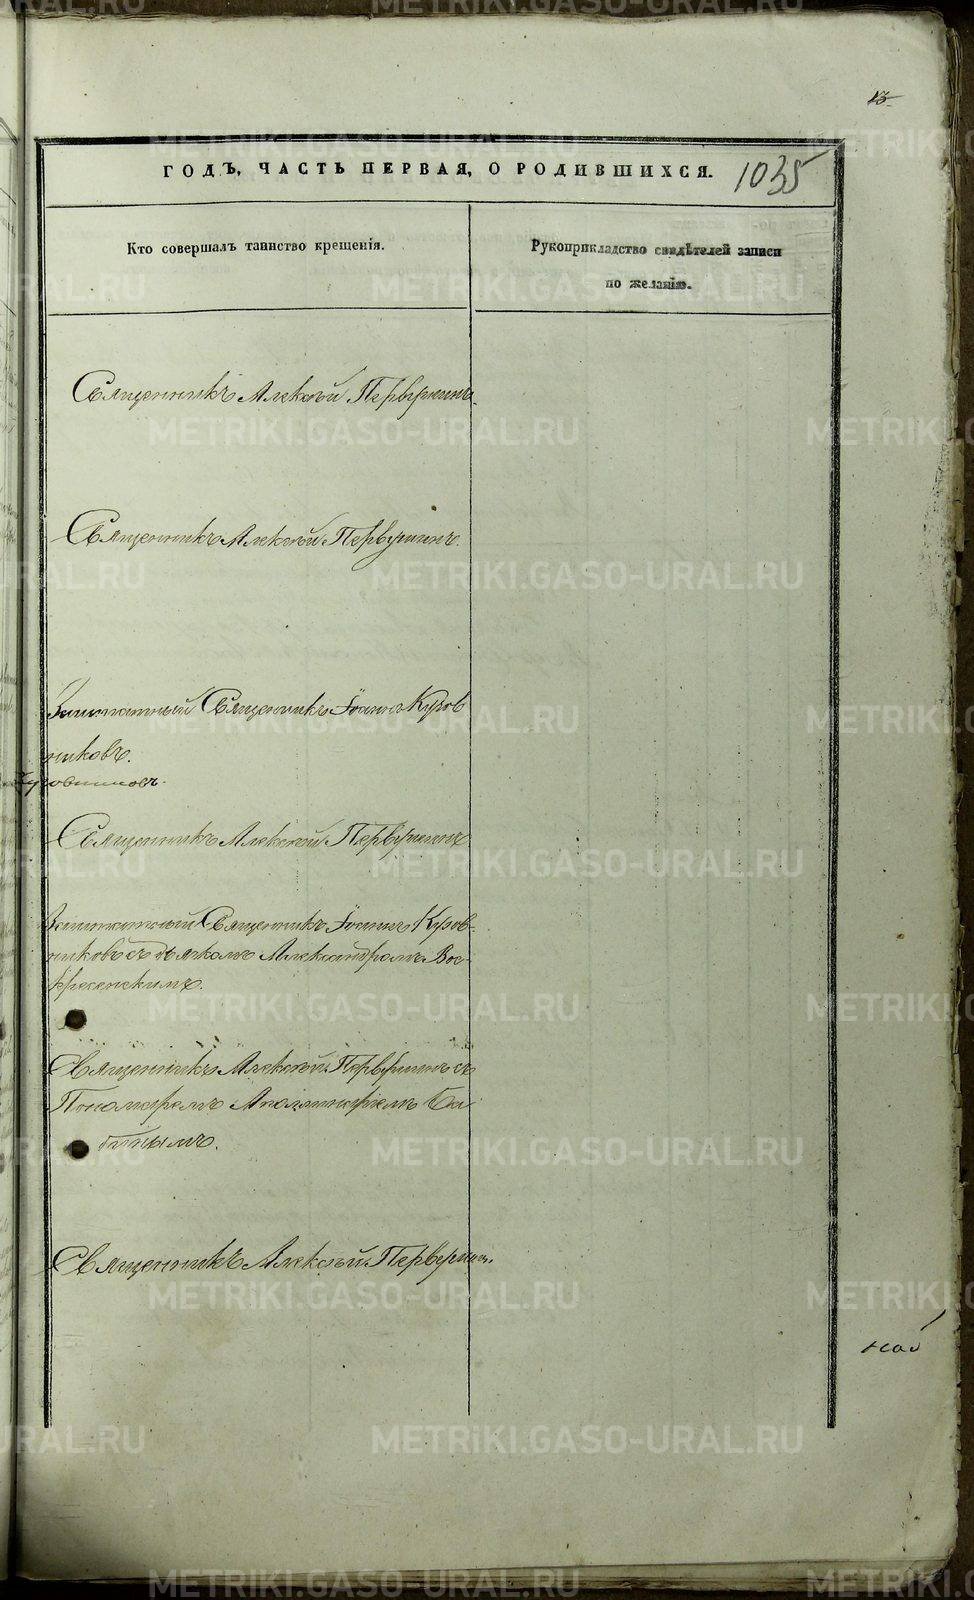 13
ГОДЪ, ЧАСТЬ ПЕРВАЯ, О РОДИВШИХСЯ.
1035
Кто совершалъ таинство крещенія.
Рукоприкладство свидѣтелей записи
по желанію.
Священникъ Алексѣй Первушинъ.
Священникъ Алексѣй Первушинъ.
Заштатный Священникъ Іоаннъ Куров
никовъ.
Священникъ Алексѣй Первушинъ
Заштатный Священникъ Іоаннъ Куров-
никовъ съ дьячкомъ Александромъ Вос-
кресенскимъ.
Священникъ Алексѣй Первушинъ съ
Пономаремъ Аполлинаріемъ Ба
бинымъ.
Священникъ Алексѣй Первушинъ.
METRIKI.GASO-URAL.RU